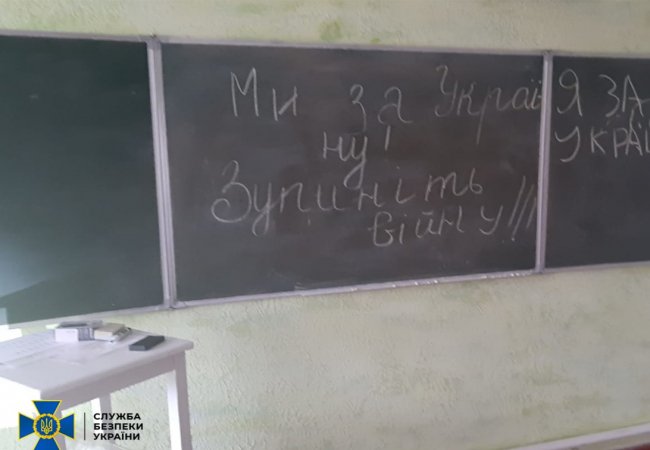 Ми за Украї
ну!
Зупиніть
війну!!!
Я ЗА
УКРАЇ
СЛУЖБА
БЕЗПЕКИ
УКРАЇНИ